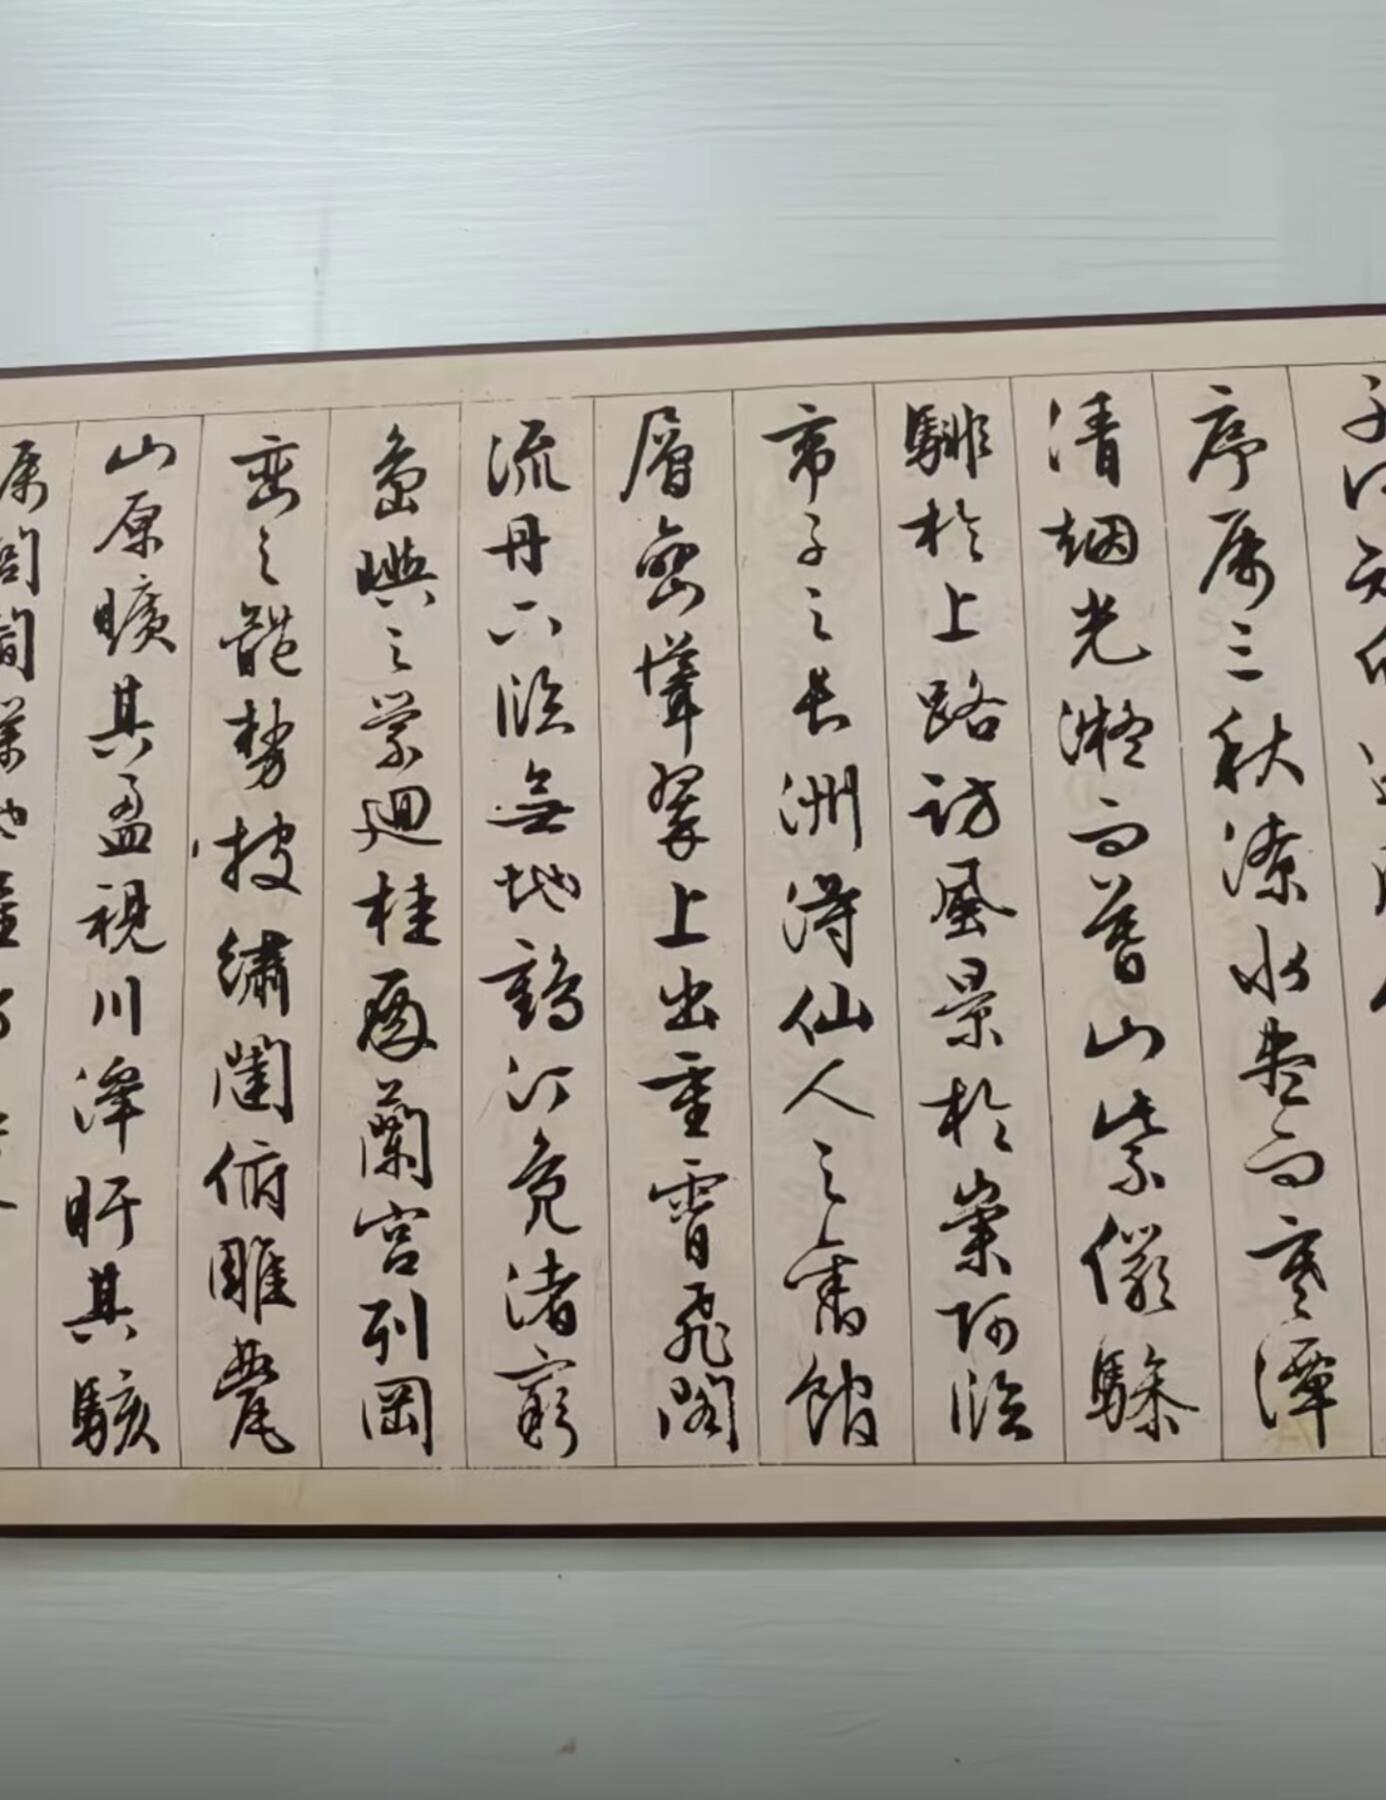 子何知
序属三秋潦水盡而寒潭
清烟光凝而暮山紫儼驂
騑於上路訪風景於崇阿臨
帝子之長洲得仙人之舊館
層巒聳翠上出重霄飛閣
流丹下臨無地鶴汀鳧渚窮
島嶼之縈迴桂殿蘭宮列岡
巒之體勢披繡闥俯雕甍
山原曠其盈視川澤盱其駭
閭閻撲地